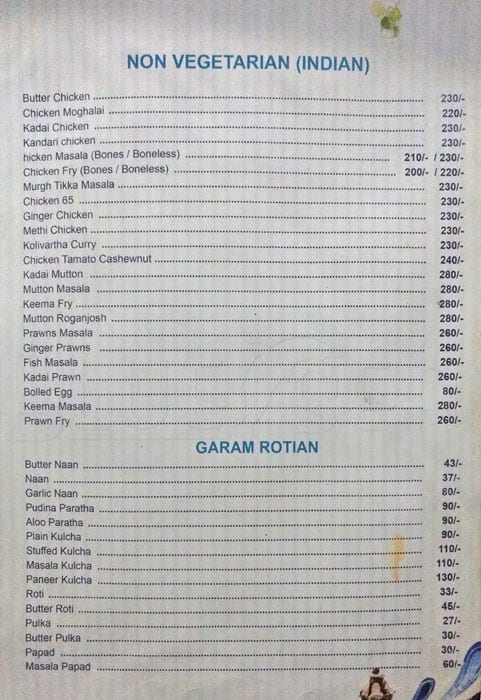 NON VEGETARIAN (INDIAN)
Butter Chicken ........ 230/-
Chicken Moghalai ........ 220/-
Kadai Chicken ........ 230/-
Kandari chicken ........ 230/-
hicken Masala (Bones / Boneless) ........ 210/- / 230/-
Chicken Fry (Bones / Boneless) ........ 200/- / 220/-
Murgh Tikka Masala ........ 230/-
Chicken 65 ........ 230/-
Ginger Chicken ........ 230/-
Methi Chicken ........ 230/-
Kolivartha Curry ........ 230/-
Chicken Tamato Cashewnut ........ 240/-
Kadai Mutton ........ 280/-
Mutton Masala ........ 280/-
Keema Fry ........ 280/-
Mutton Roganjosh ........ 280/-
Prawns Masala ........ 260/-
Ginger Prawns ........ 260/-
Fish Masala ........ 260/-
Kadai Prawn ........ 260/-
Bolled Egg ........ 80/-
Keema Masala ........ 280/-
Prawn Fry ........ 260/-
GARAM ROTIAN
Butter Naan ........ 43/-
Naan ........ 37/-
Garlic Naan ........ 80/-
Pudina Paratha ........ 90/-
Aloo Paratha ........ 90/-
Plain Kulcha ........ 90/-
Stuffed Kulcha ........ 110/-
Masala Kulcha ........ 110/-
Paneer Kulcha ........ 130/-
Roti ........ 33/-
Butter Roti ........ 45/-
Pulka ........ 27/-
Butter Pulka ........ 30/-
Papad ........ 30/-
Masala Papad ........ 60/-